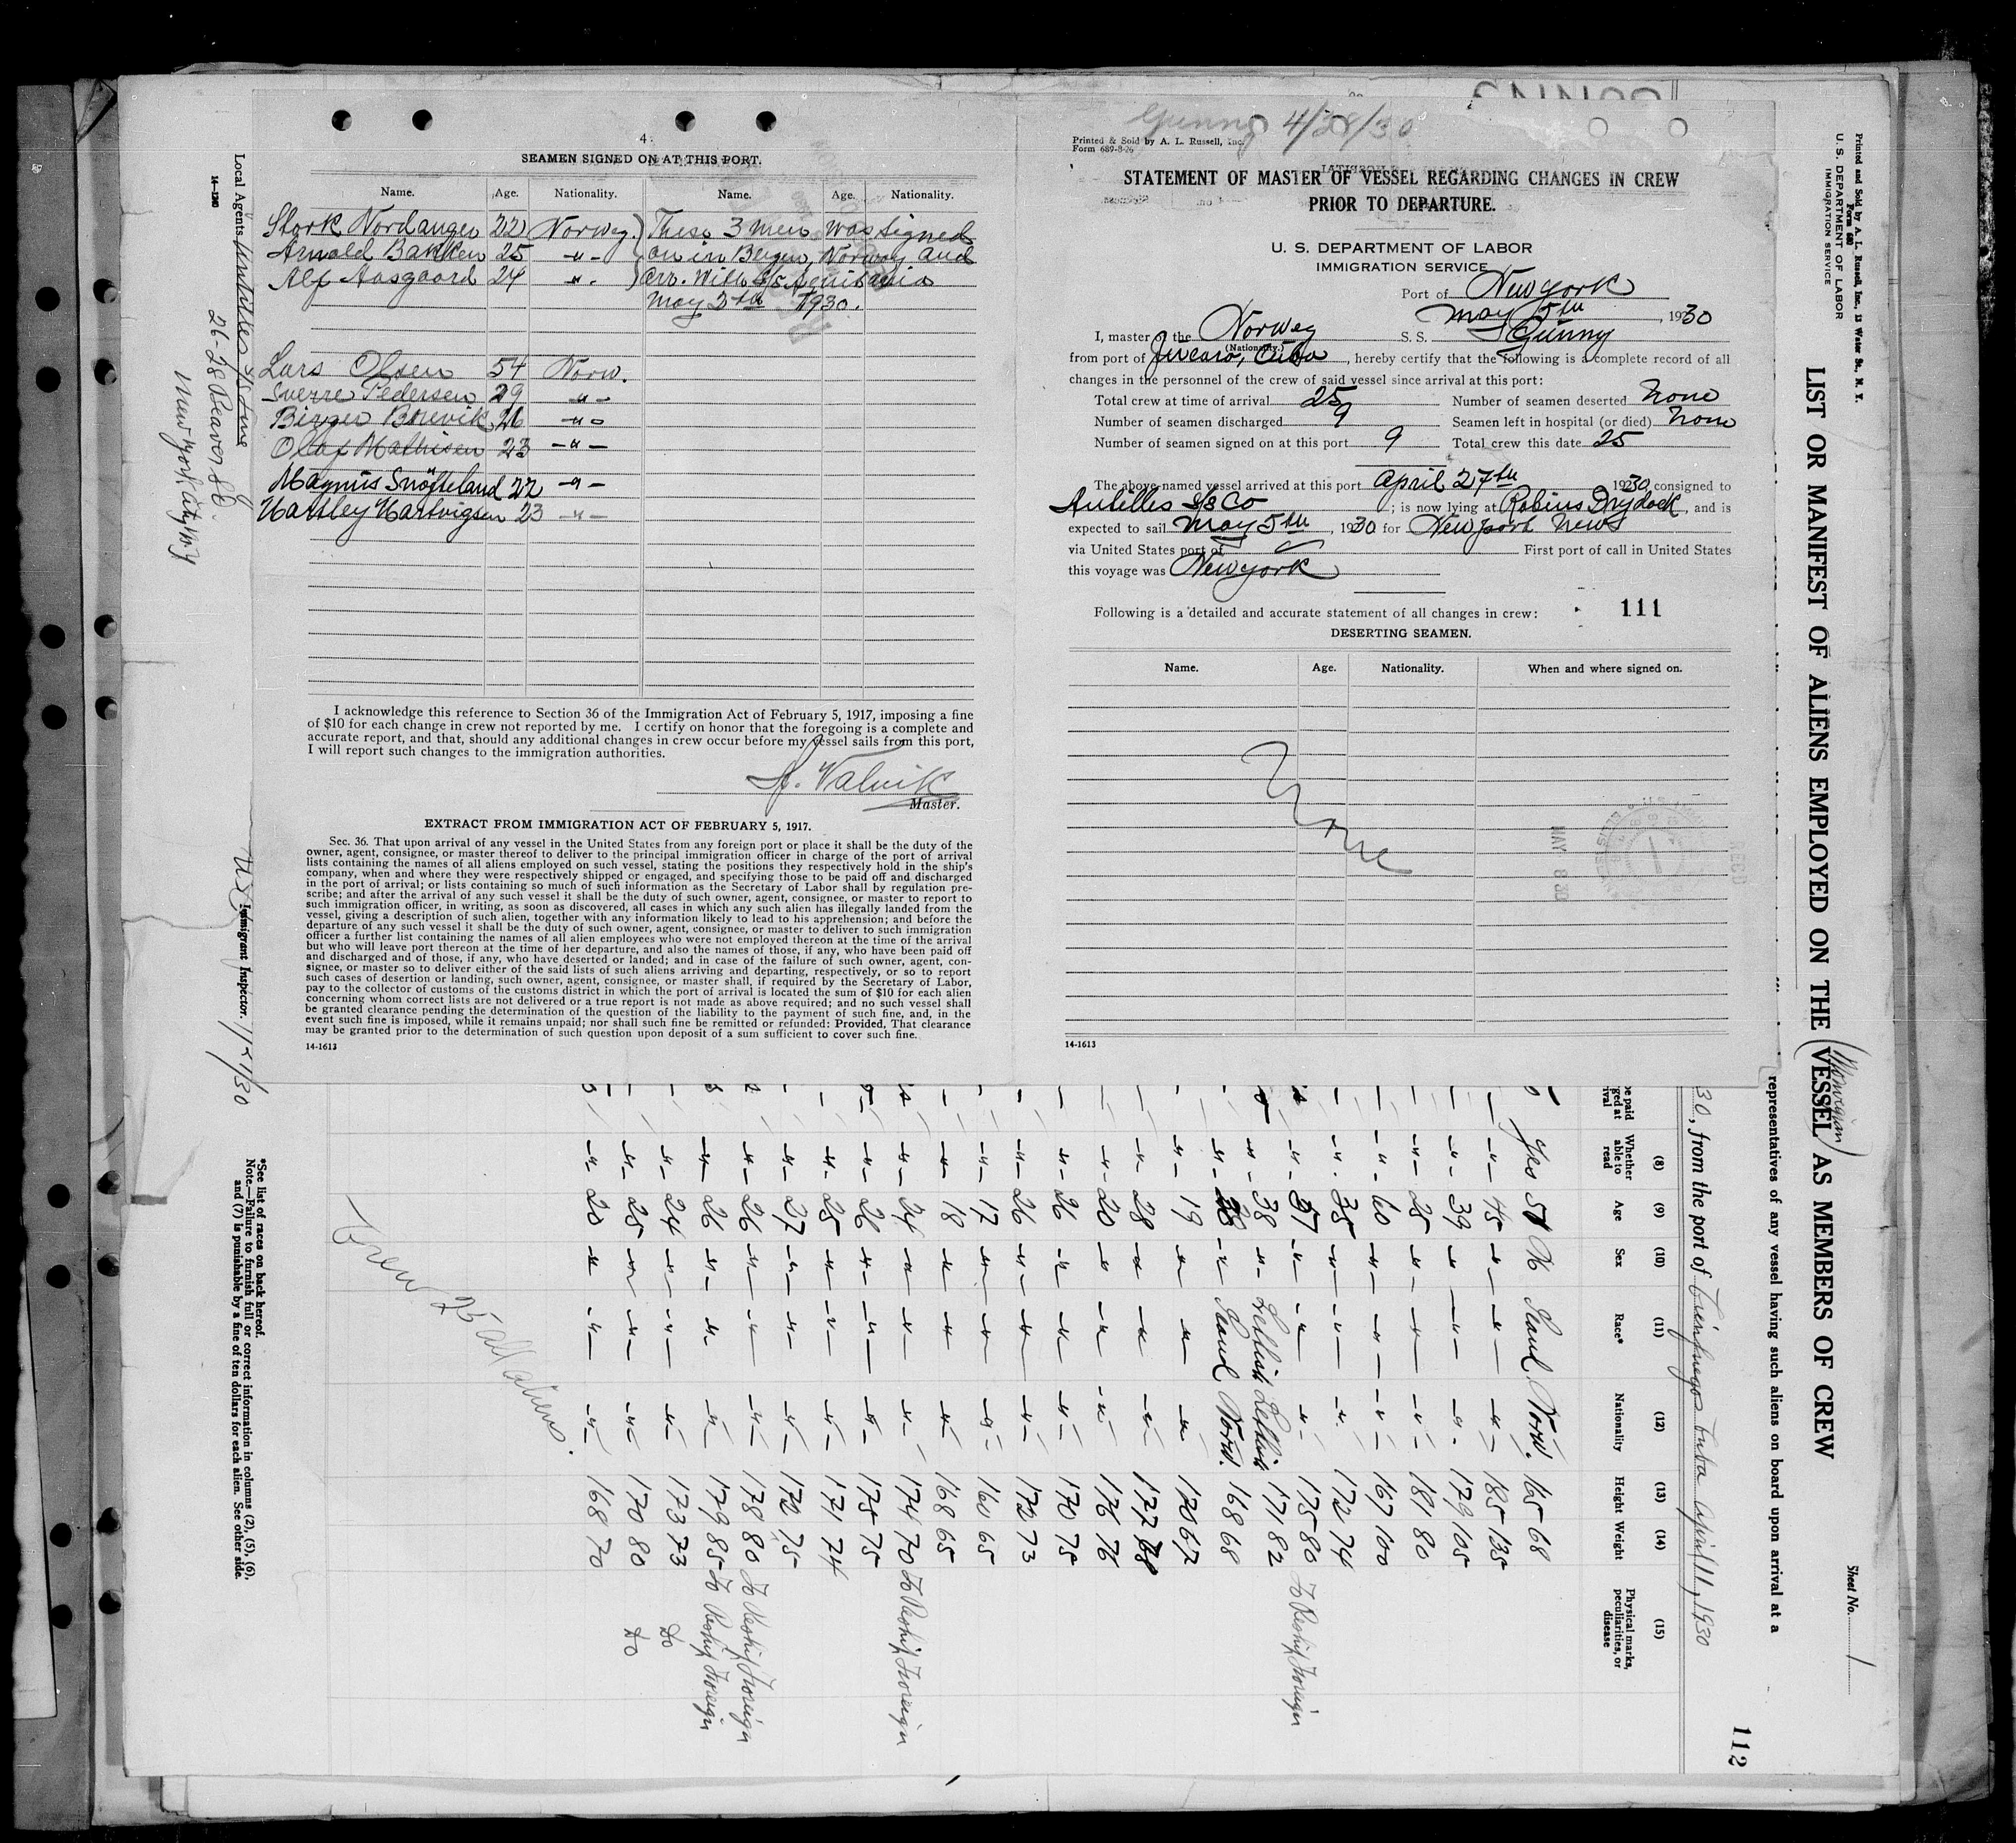 4
SEAMEN SIGNED ON AT THIS PORT.
Name. Age. Nationality. Name. Age. Nationality.
Stork Nordanger 22 Norweg. These 3 men was signed
Arnold Bakken 25 -"- on in Bergen, Norway and
Alf Aasgaard 24 -"- arr. with S/S Aquitania
May 2th 1930.
Lars Olsen 54 Norw.
Sverre Pedersen 29 -"-
Birger Brevik 26 -"-
Olaf Mathisen 23 -"-
Magnus Snöfteland 22 -"-
Hartley Hartvigsen 23 -"-
I acknowledge this reference to Section 36 of the Immigration Act of February 5, 1917, imposing a fine
of $10 for each change in crew not reported by me. I certify on honor that the foregoing is a complete and
accurate report, and that, should any additional changes in crew occur before my vessel sails from this port,
I will report such changes to the immigration authorities.
Valvik
Master.
EXTRACT FROM IMMIGRATION ACT OF FEBRUARY 5, 1917.
Sec. 36. That upon arrival of any vessel in the United States from any foreign port or place it shall be the duty of the
owner, agent, consignee, or master thereof to deliver to the principal immigration officer in charge of the port of arrival
lists containing the names of all aliens employed on such vessel, stating the positions they respectively hold in the ship's
company, when and where they were respectively shipped or engaged, and specifying those to be paid off and discharged
in the port of arrival; or lists containing so much of such information as the Secretary of Labor shall by regulation pre-
scribe; and after the arrival of any such vessel it shall be the duty of such owner, agent, consignee, or master to report to
such immigration officer, in writing, as soon as discovered, all cases in which any such alien has illegally landed from the
vessel, giving a description of such alien, together with any information likely to lead to his apprehension; and before the
departure of any such vessel it shall be the duty of such owner, agent, consignee, or master to deliver to such immigration
officer a further list containing the names of all alien employees who were not employed thereon at the time of the arrival
but who will leave port thereon at the time of her departure, and also the names of those, if any, who have been paid off
and discharged and of those, if any, who have deserted or landed; and in case of the failure of such owner, agent, con-
signee, or master so to deliver either of the said lists of such aliens arriving and departing, respectively, or so to report
such cases of desertion or landing, such owner, agent, consignee, or master shall, if required by the Secretary of Labor,
pay to the collector of customs of the customs district in which the port of arrival is located the sum of $10 for each alien
concerning whom correct lists are not delivered or a true report is not made as above required; and no such vessel shall
be granted clearance pending the determination of the question of the liability to the payment of such fine, and, in the
event such fine is imposed, while it remains unpaid; nor shall such fine be remitted or refunded: Provided, That clearance
may be granted prior to the determination of such question upon deposit of a sum sufficient to cover such fine.
14-1613
Gunny 4/28/30
Printed & Sold by A. L. Russell, Inc.
Form 689-8-26
STATEMENT OF MASTER OF VESSEL REGARDING CHANGES IN CREW
PRIOR TO DEPARTURE.
U. S. DEPARTMENT OF LABOR
IMMIGRATION SERVICE
Port of New York
May 5th, 1930
I, master of the Norweg S. S. Gunny
(Nationality.)
from port of Jucaro, Cuba, hereby certify that the following is a complete record of all
changes in the personnel of the crew of said vessel since arrival at this port:
Total crew at time of arrival 25 Number of seamen deserted None
Number of seamen discharged 9 Seamen left in hospital (or died) None
Number of seamen signed on at this port 9 Total crew this date 25
The above-named vessel arrived at this port April 27th 1930 consigned to
Antilles S/S Co; is now lying at Robins Drydock, and is
expected to sail May 5th, 1930 for Newport News
via United States port of First port of call in United States
this voyage was New York
Following is a detailed and accurate statement of all changes in crew:
111
DESERTING SEAMEN.
Name. Age. Nationality. When and where signed on.
None
MAY 8 30
REC'D
14-1613
Printed and Sold by A. L. Russell, Inc., 13 Water St., N. Y.
Form 680
U. S. DEPARTMENT OF LABOR
IMMIGRATION SERVICE
LIST OR MANIFEST OF ALIENS EMPLOYED ON THE (Norwegian) VESSEL AS MEMBERS OF CREW
Sheet No. 1
112
representatives of any vessel having such aliens on board upon arrival at a
30, from the port of Cienfuegos Cuba April 11, 1930
(8) (9) (10) (11) (12) (13) (14) (15)
Whether able to read Age Sex Race* Nationality Height Weight Physical marks, peculiarities, or disease
Yes 51 M Scand. Norw. 165 68
-"- 45 -"- -"- -"- 185 135
-"- 39 -"- -"- -"- 179 105
-"- 25 -"- -"- -"- 181 80
-"- 60 -"- -"- -"- 167 100
-"- 35 -"- -"- -"- 172 74
-"- 37 -"- -"- -"- 175 80 To Reship Foreign
-"- 38 -"- Lettish Lettish 171 82
-"- 28 -"- Scand Norw. 168 68
-"- 19 -"- -"- -"- 170 67
-"- 28 -"- -"- -"- 177 78
-"- 20 -"- -"- -"- 176 76
-"- 26 -"- -"- -"- 170 75
-"- 26 -"- -"- -"- 172 73
-"- 17 -"- -"- -"- 160 65
-"- 18 -"- -"- -"- 168 65
-"- 24 -"- -"- -"- 174 70 To Reship Foreign
-"- 26 -"- -"- -"- 175 75
-"- 25 -"- -"- -"- 171 74
-"- 27 -"- -"- -"- 172 75
-"- 26 -"- -"- -"- 178 80 To Reship Foreign
-"- 26 -"- -"- -"- 179 85 To Reship Foreign
-"- 24 -"- -"- -"- 173 73 do
-"- 25 -"- -"- -"- 170 80 do
-"- 20 -"- -"- -"- 168 70
Crew 25 all aliens.
*See list of races on back hereof.
Note.—Failure to furnish full or correct information in columns (2), (5), (6),
and (7) is punishable by a fine of ten dollars for each alien. See other side.
Local Agents Antilles S/S Line
26-28 Beaver St.
New York City N.Y.
14-1240
Immigrant Inspector.